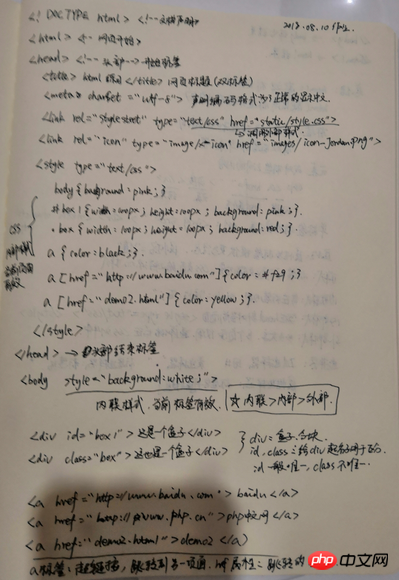 <! DOCTYPE html> <!--文档声明-->
2018.08.10 Fri.
<html> <!-- 网页开始-->
<head> <!-- 头部--> 开始标签
<title> html </title> 网页标题
<meta charset = "utf-8"> 声明编码格式 正常的显示中文.
<link rel="stylesheet" type="text/css" href="static/style.css">
调用外部样式.
<link rel="icon" type="image/x-icon" href="images/icon-jordan.png">
<style type="text/css">
body {background: pink;}
# box1 {width: 100px; height: 100px; background: pink;}.
. box {width: 100px; height: 100px; background: red;}.
css
内部样式
当前页面
有效
a {color: black;}
a [href="http://www.baidu.com"] {color: #f29;}.
a [href="demo2.html"] {color: yellow;}.
</style>
</head> → 头部结束标签
<body style="background: white;">
内联样式. 当前标签有效. ☆ 内联>内部>外部.
<div id="box1"> 这是个盒子 </div>
<div class="box"> 这也是一个盒子 </div>
div = 盒子、区块.
id、class: 给div起名
id一般唯一, class不唯一.
<a href="http://www.baidu.com"> baidu </a>
<a href="http://www.php.cn"> php中文网 </a>
<a href="demo2.html"> demo2 </a>
a标签: 超链接, 跳转到另一页面. href属性: 跳转的
php 中文网